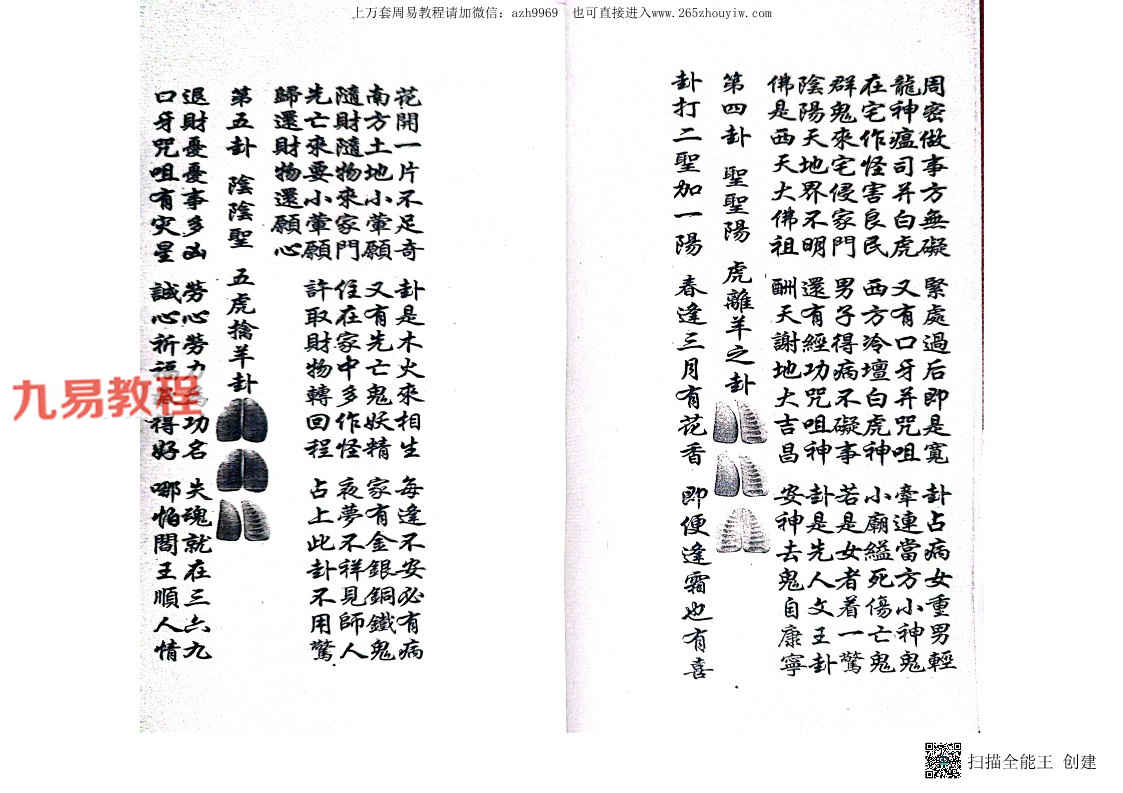 上万套周易教程请加微信：azh9969 也可直接进入www.265zhouyiw.com
周密做事方無礙 緊處過后即是寬 卦占病女重男輕
龍神瘟司并白虎 又有口牙并咒咀 牽連當方小神鬼
在宅作怪害良民 西方冷壇白虎神 小廟縊死傷亡鬼
群鬼來宅侵家門 男子得病不礙事 若是女者着一驚
陰陽天地界不明 還有經功咒咀神 卦是先人文王卦
佛是西天大佛祖 酬天謝地大吉昌 安神去鬼自康寧
第四卦 聖聖陽 虎離羊之卦
卦打二聖加一陽 春逢三月有花香 即便逢霜也有喜
花開一片不足奇 卦是木火來相生 每逢不安必有病
南方土地小葷願 又有先亡鬼妖精 家有金銀銅鐵鬼
隨財隨物來家門 住在家中多作怪 夜夢不祥見師人
先亡來要小葷願 許取財物轉回程 占上此卦不用驚
歸還財物還願心
第五卦 陰陰聖 五虎擒羊卦
退財憂憂事多凶 勞心勞力功名 失魂就在三六九
口牙咒咀有灾星 誠心祈福得好 哪怕閻王順人情
九易教程
扫描全能王 创建